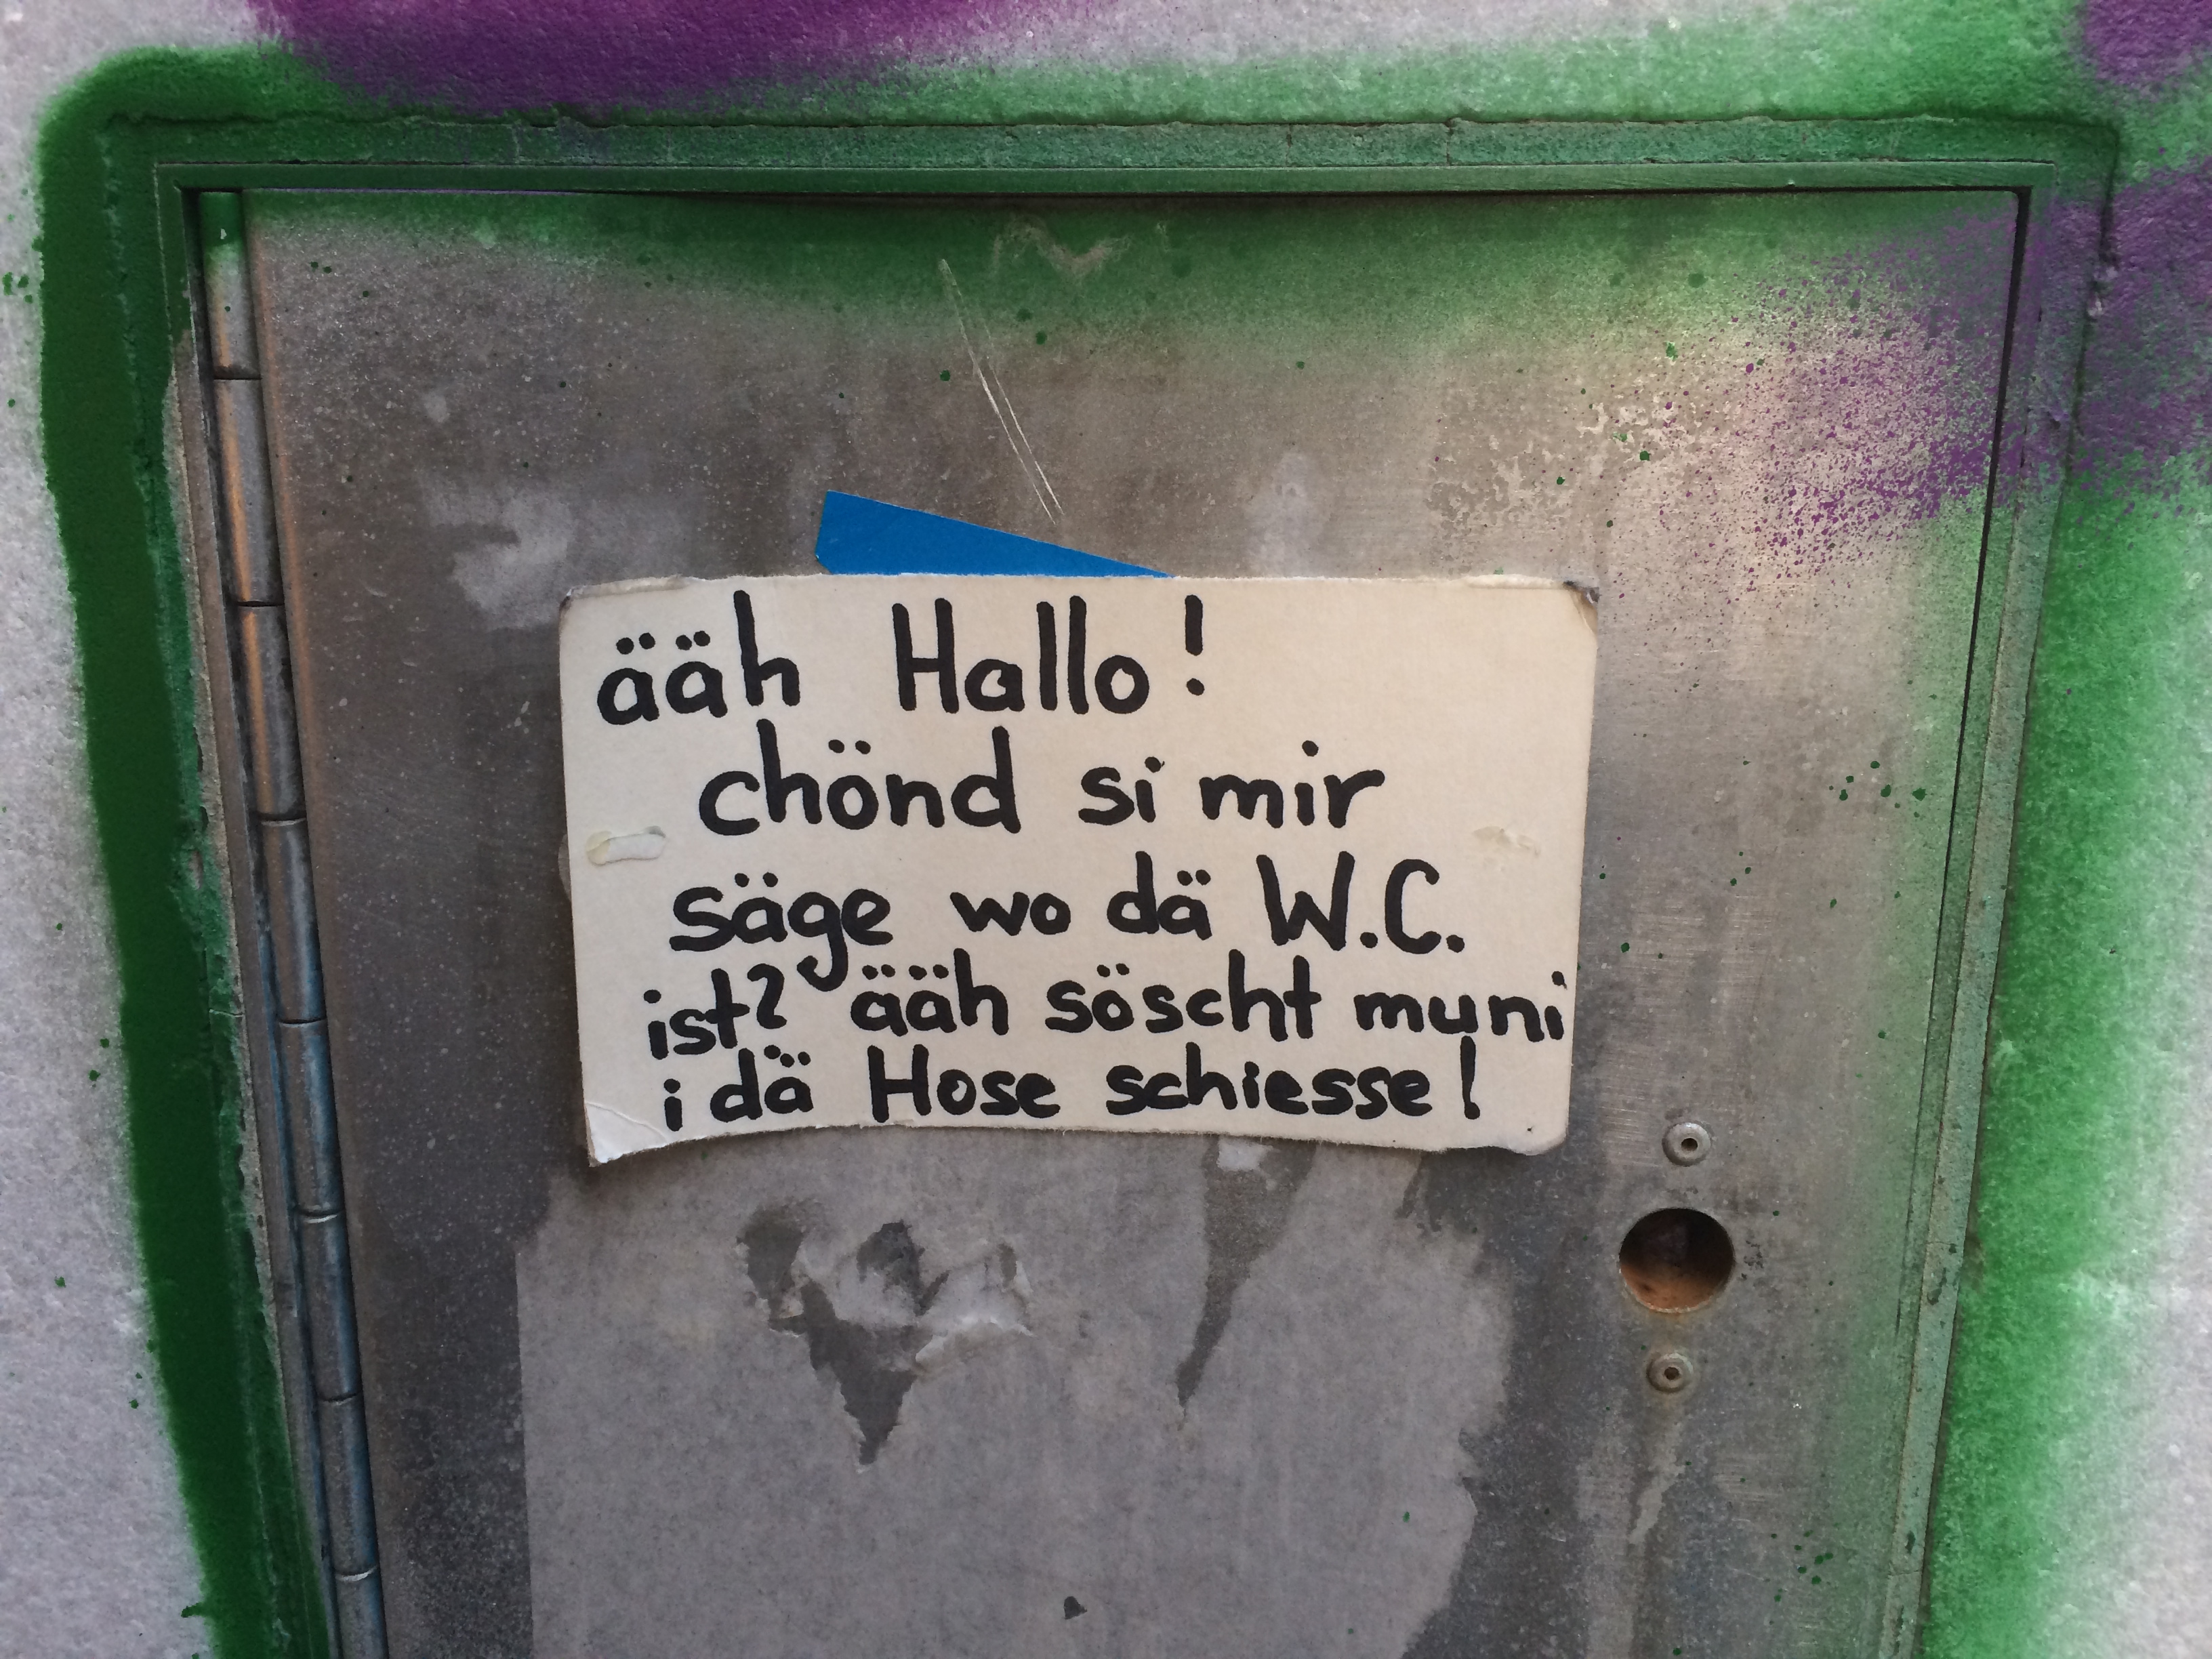 ääh Hallo!
chönd si mir
säge wo dä W.C.
ist? ääh söscht muni
i dä Hose schiesse!